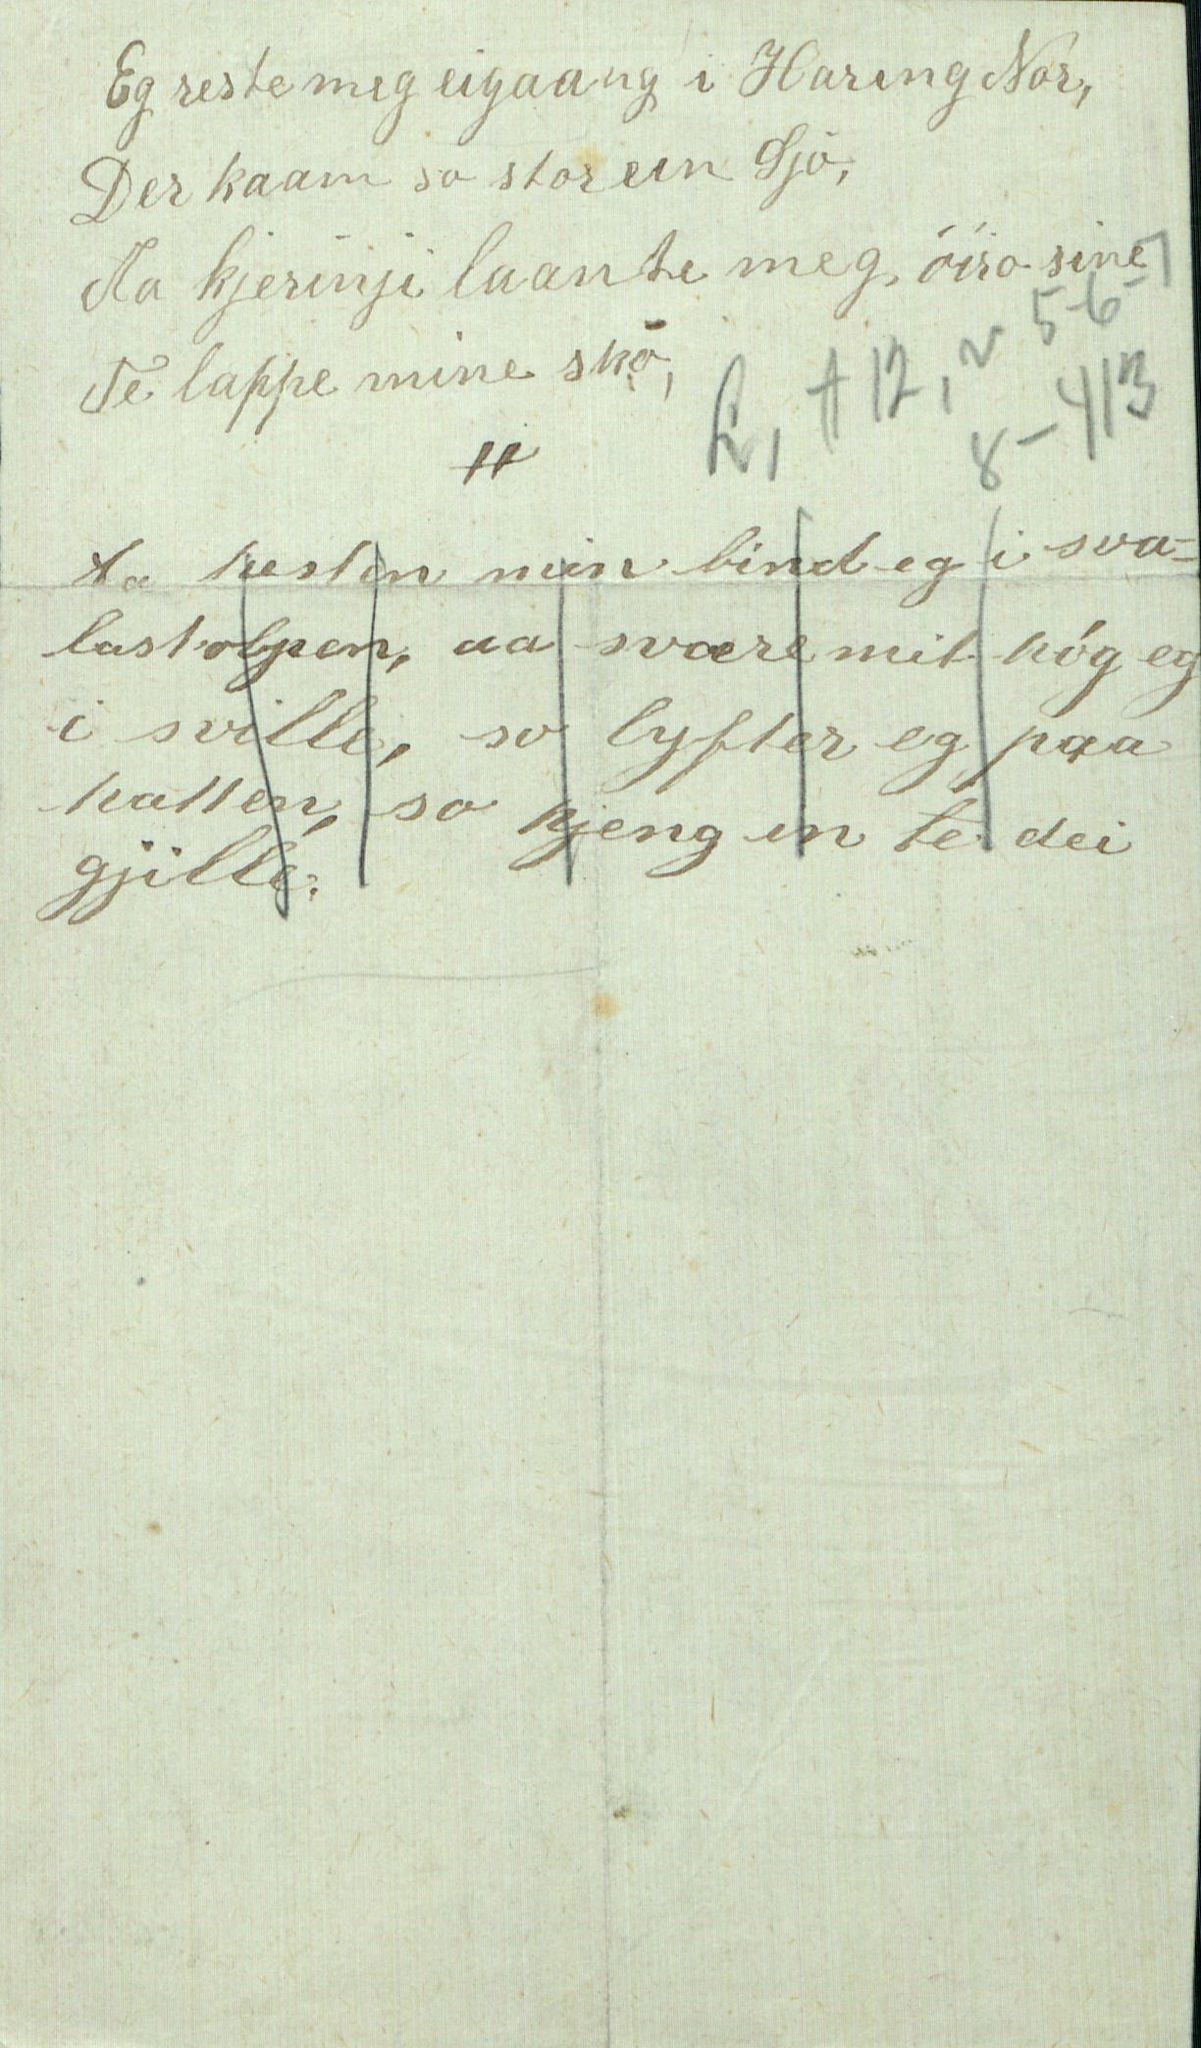 Eg reste meg eigaang i Haring Nór,
Der kaam so stor ein Sjó,
Aa kjerinji laante meg, óiro sine
Te lappe mine skó,
5-6-7
12, v
8-413
"
Aa hesten min bind eg i sva-
lastolpen, aa sværemit hóg eg
i sville, so lyfter eg paa
hatten, so gjeng in te dei
gjille.